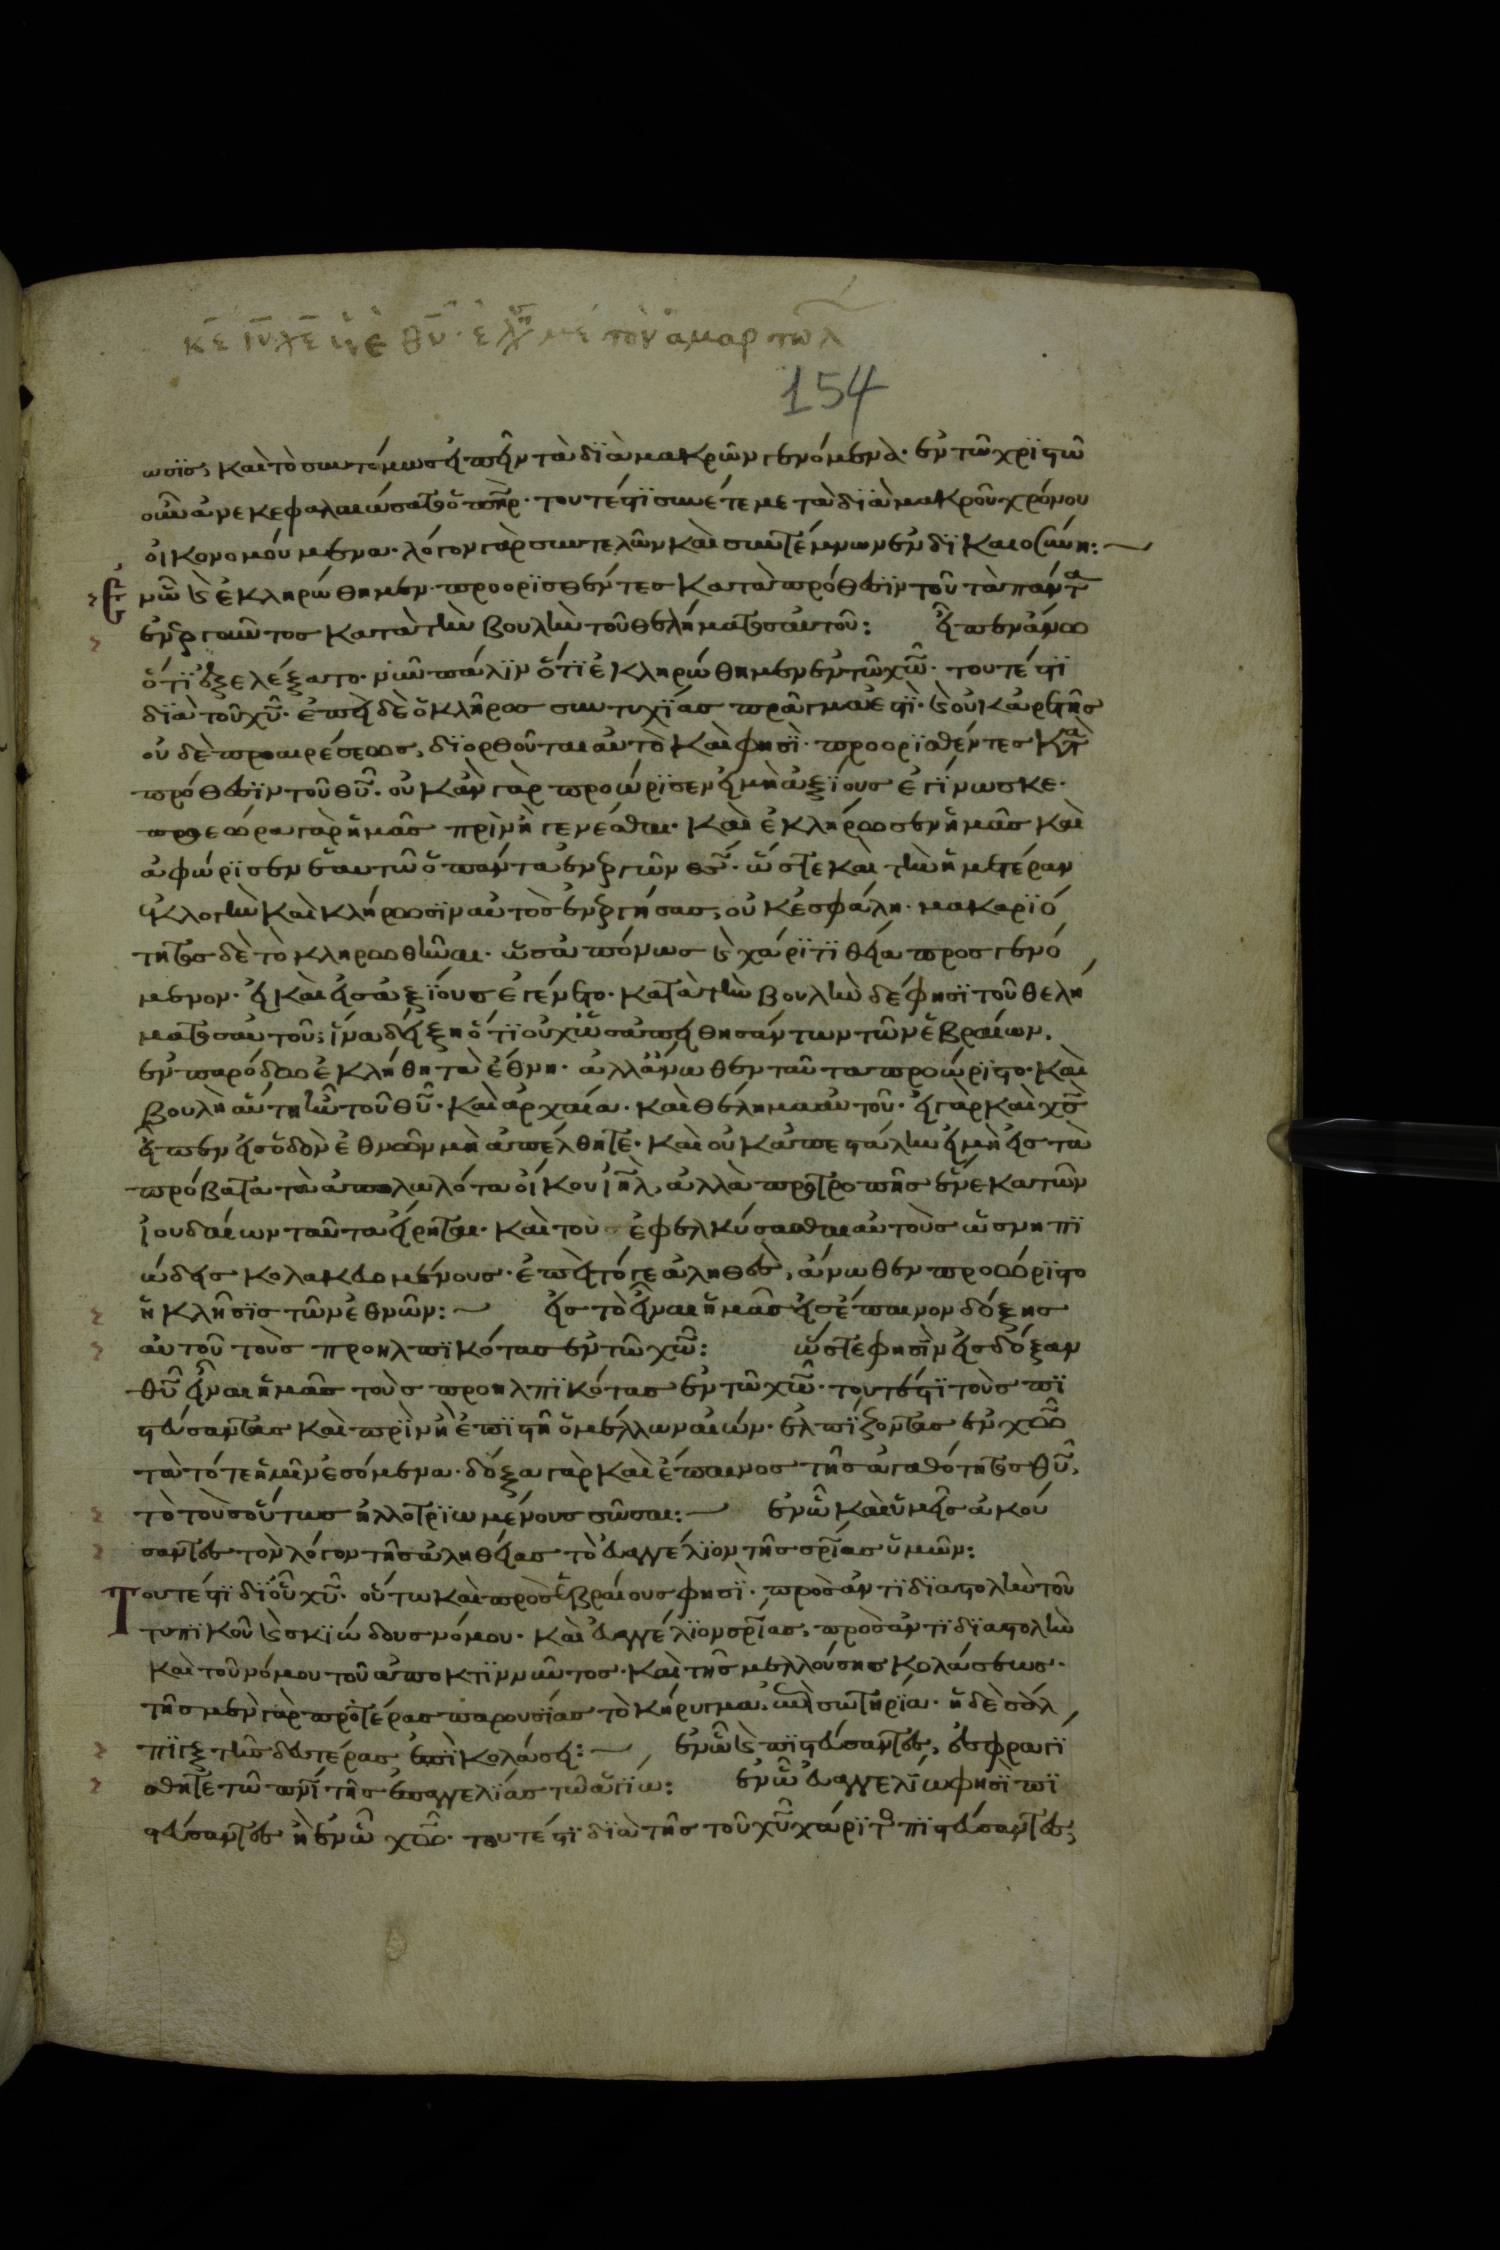 κε ιυ χε υιε θυ ελε με τον αμαρτωλ
154
ωσϊς, καὶ τὸ συντόμως εἰπεῖν τὰ δϊὰ μακρῶν γενόμενα· ἐν τῶ χρϊστῶ
οὖν ἀνεκεφαλαιώσατο ὁ πηρ· τουτέστϊ συνέτεμε τὰ δϊὰ μακροῦ χρόνου
οἰκονομούμενα· λόγον γὰρ συντελῶν καὶ συντέμνων ἐν δϊκαιοσύνη:
Ἐν ὧ καὶ ἐκληρώθημεν προορϊσθέντες κατὰ πρόθεσϊν τοῦ τὰ πάντα
ἐνεργοῦντος κατὰ τὴν βουλὴν τοῦ θελήματος αὐτοῦ: εἶπεν ἄνω
ὅτϊ ἐξελέξατο· νῦν πάλϊν ὅτϊ ἐκληρώθημεν ἐν τῶ χω· τουτέστϊ
δϊὰ τοῦ χυ· ἐπεὶ δὲ ὁ κλῆρος συντυχϊάς πρᾶγμα ἐστϊ· καὶ οὐκ ἀρετῆς
οὐδὲ προαιρέσεως, δϊορθοῦται αὐτὸ καὶ φησϊ· προορϊσθέντες κατὰ
πρόθεσϊν τοῦ θυ· οὐκ ἂν γὰρ προώρϊσεν εἰ μὴ ἀξϊους ἐγϊνωσκε·
προεώρα γὰρ ἡμᾶς πρὶν ἢ γενέσθαι· καὶ ἐκλήρωσεν ἡμᾶς καὶ
ἀφώρϊσεν ἑαυτῶ ὁ πάντα ἐνεργῶν θς· ὥστε καὶ τὴν ἡμετέραν
ἐκλογὴν καὶ κλήρωσϊν αὐτὸς ἐνεργήσας, οὐκ ἐσφάλη· μακαρϊό
τητος δὲ τὸ κληρωθῆναι· ὡς ἀπόνως καὶ χάρϊτϊ θεία προσγενό
μενον· εἰ καὶ εἰς ἀξϊους ἐγένετο· κατὰ τὴν βουλὴν δέ φησϊ τοῦ θελή
ματος αὐτοῦ; ἵνα δείξη ὅτϊ οὐχ ὡς ἀπειθησάντων τῶν ἑβραίων,
ἐν παρόδω ἐκλήθη τὰ ἔθνη· ἀλλ' ἄνωθεν ταῦτα προώρϊστο· καὶ
βουλὴ αὕτη ἦν τοῦ θυ· καὶ ἀρχαία· καὶ θέλημα αὐτοῦ· εἰ γὰρ καὶ χς
εἶπεν εἰς ὁδὸν ἐθνῶν μὴ ἀπέλθητε· καὶ οὐκ ἀπεστάλην εἰ μὴ εἰς τὰ
πρόβατα τὰ ἀπολωλότα οἴκου ιηλ, ἀλλὰ προτροπῆς ἕνεκα τῶν
ἰουδαίων ταῦτα εἴρηται· καὶ τοῦ ἐφελκύσασθαι αὐτοὺς ὡς νηπϊ
ώδεις κολακευομένους· ἐπεὶ τό γε ἀληθὲς, ἄνωθεν προώρϊστο
ἡ κλῆσϊς τῶν ἐθνῶν: εἰς τὸ εἶναι ἡμᾶς εἰς ἔπαινον δόξης
αὐτοῦ τοὺς προηλπϊκότας ἐν τῶ χω: ὥστε φησϊν εἰς δόξαν
θυ εἶναι ἡμᾶς τοὺς προηλπϊκότας ἐν τῶ χω· τουτέστϊ τοὺς πϊ
στεύσαντας καὶ πρὶν ἢ ἐπϊστῆ ὁ μέλλων αἰών· ἐλπϊζοντας ἐν χω
τὰ τότε ἡμῖν ἐσόμενα· δόξα γὰρ καὶ ἔπαινος τῆς ἀγαθότητος θυ,
τὸ τοὺς οὕτως ἠλλοτρϊωμένους σῶσαι: ἐν ὧ καὶ ὑμεῖς ἀκού
σαντες τὸν λόγον τῆς ἀληθείας τὸ εὐαγγέλϊον τῆς σρϊας ὑμῶν:
Τουτέστϊ δϊ' οὗ χυ· οὕτω καὶ πρὸς ἑβραίους φησϊ· πρὸς ἀντϊδϊαστολὴν τοῦ
τυπϊκοῦ καὶ σκϊώδους νόμου· καὶ εὐαγγέλϊον σρϊας, πρὸς ἀντϊδϊαστολὴν
καὶ τοῦ νόμου τοῦ ἀποκτϊννύντος· καὶ τῆς μελλούσης κολάσεως·
τῆς μὲν γὰρ προτέρας παρουσϊας τὸ κήρυγμα, ἐπὶ σωτηρϊα· ἡ δὲ σάλ
πϊγξ τῆς δευτέρας ἐπὶ κολάσει: ἐν ὧ καὶ πϊστεύσαντες, ἐσφραγϊ
σθητε τῶ πνϊ τῆς ἐπαγγελϊας τῶ ἁγϊω: ἐν ὧ εὐαγγελϊω φησϊ πϊ
στεύσαντες ἢ ἐν ὧ χω· τουτέστϊ δϊὰ τῆς τοῦ χυ χάρϊτος πϊστεύσαντες,